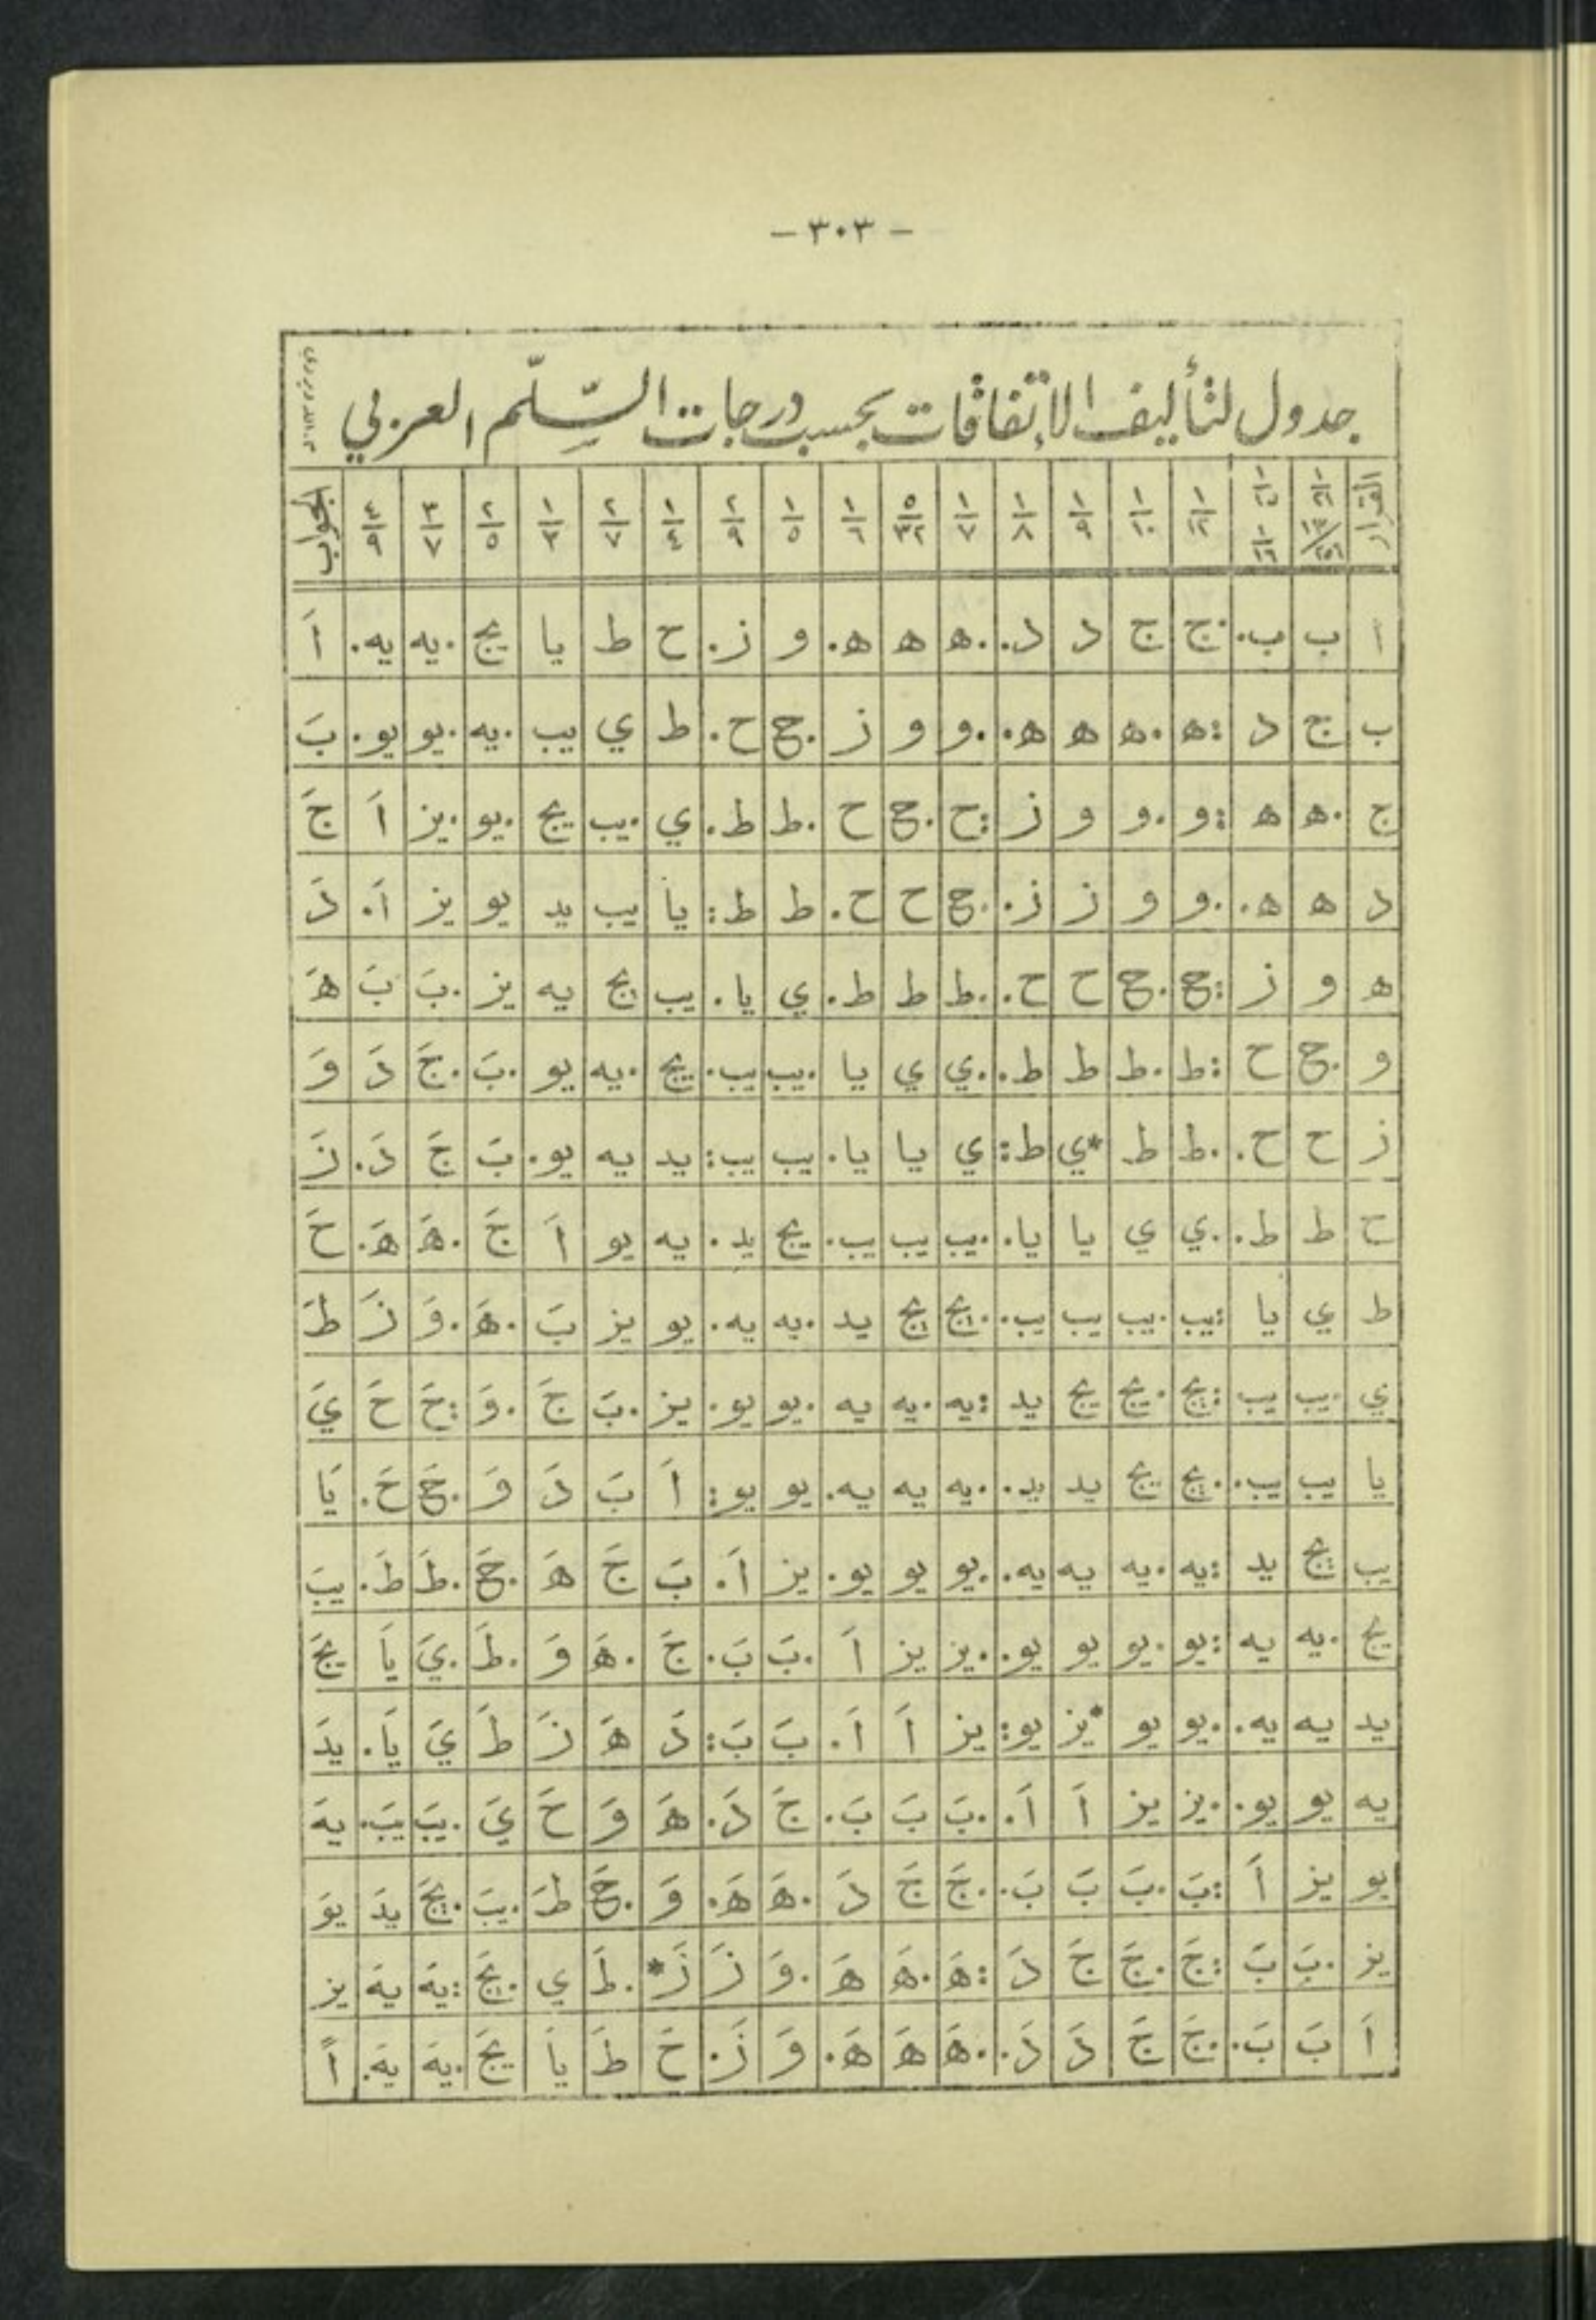 - ٣٠٣ -
جدول لتأليف الإتفاقات بحسب درجات السّلّم العربي
القرار ١٣/٢٥٦ ١/١٦ ١/١٢ ١/١٠ ١/٩ ١/٨ ١/٧ ٥/٣٢ ١/٦ ١/٥ ٢/٩ ١/٤ ٢/٧ ١/٣ ٢/٥ ٣/٧ ٤/٩ الجواب
ا ب ب. ..ج ج د د.. ..ه ه ه. و ز. ح ط يا يج .يه يه. اَ
ب ج د :ه .ه ه ه.. ..و و ز .ح ح. ط ي يب .يه .يو يو. بَ
ج .ه ه :و .و و ز :ح .ح ح .ط ط. ي .يب يج .يو .يز اَ جَ
د ه ه.. ..و و ز ز. ..ح ح ح. ط ط: يا يب يد يو يز اَ. دَ
ه و ز :ح .ح ح ح.. ..ط ط ط. ي يا. يب يج يه يز .بَ بَ هَ
و .ح ح :ط .ط ط ط.. ..ي ي يا .يب يب. يج .يه يو .بَ .جَ دَ وَ
ز ح ح.. ..ط ط *ي ط: ي يا يا. يب يب: يد يه يو. بَ جَ دَ. زَ
ح ط ط.. ..ي ي يا يا. ..يب يب يب. يج يد. يه يو اَ جَ .هَ هَ. حَ
ط ي يا :يب .يب يب يب.. ..يج يج يد .يه يه. يو يز بَ .هَ .وَ زَ طَ
ي .يب يب :يج .يج يج يد :يه .يه يه .يو يو. يز .بَ جَ .وَ :حَ حَ يَ
يا يب يب.. ..يج يج يد يد.. ..يه يه يه. يو يو: اَ بَ دَ وَ .حَ حَ. يَا
يب يج يد :يه .يه يه يه.. ..يو يو يو. يز اَ. بَ جَ هَ .حَ .طَ طَ. يبَ
يج .يه يه :يو .يو يو يو.. ..يز يز اَ .بَ بَ. جَ .هَ وَ .طَ .يَ يَا يجَ
يد يه يه.. ..يو يو *يز يو: يز اَ اَ. بَ بَ: دَ هَ زَ طَ يَ يَا. يدَ
يه يو يو. ..يز يز اَ اَ. ..بَ بَ بَ. جَ دَ. هَ وَ حَ يَ .يبَ يبَ. يهَ
يو يز اَ :بَ .بَ بَ بَ.. ..جَ جَ دَ .هَ هَ. وَ .حَ طَ .يبَ .يجَ يدَ يوَ
يز .بَ بَ :جَ .جَ جَ دَ :هَ .هَ هَ .وَ زَ زَ* .طَ ي .يجَ :يهَ يهَ يز
اَ بَ بَ. ..جَ جَ دَ دَ.. ..هَ هَ هَ. وَ زَ. حَ طَ يَا يجَ .يهَ يهَ. اً